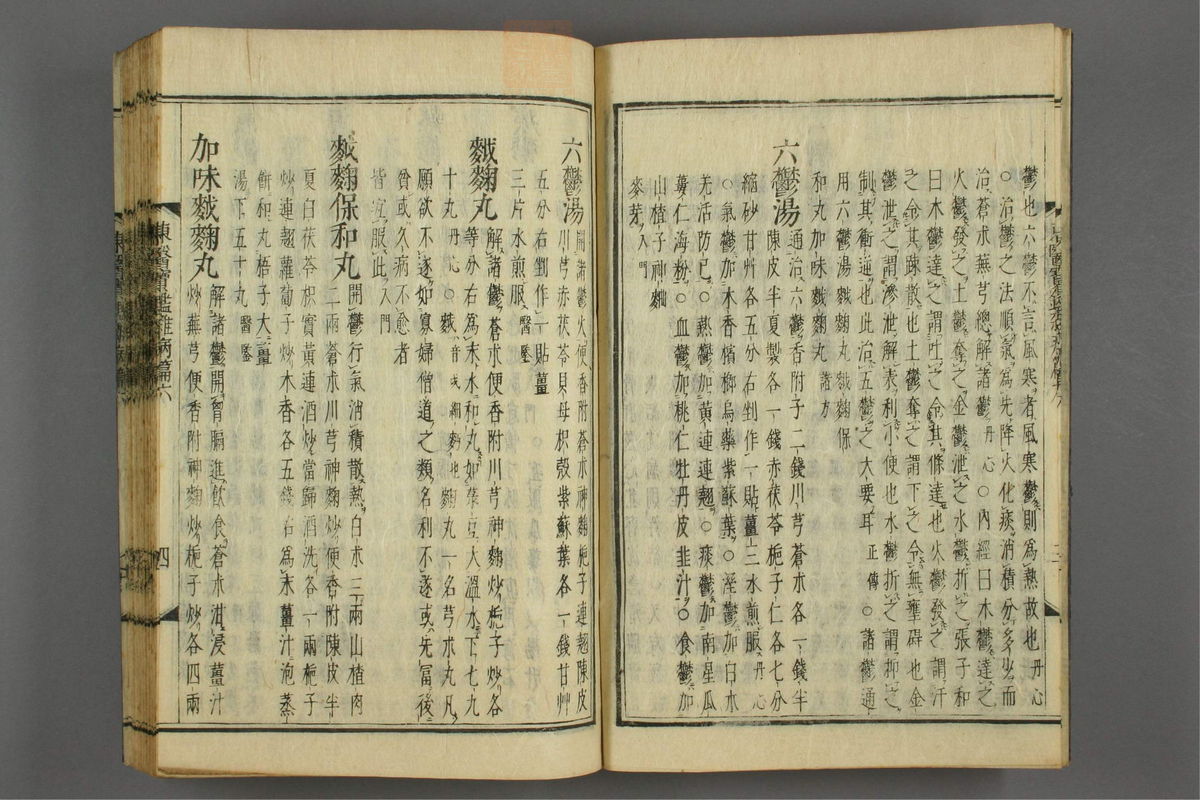 鬱也六鬱不言風寒者風寒鬱則爲熱故也丹心
○治鬱之法順氣爲先降火化痰消積分多少而
治蒼朮蕪芎總解諸鬱丹心○內經曰木鬱達之
火鬱發之土鬱奪之金鬱泄之水鬱折之張子和
曰木鬱達之謂吐之令其條達也火鬱發之謂汗
之令其踈散也土鬱奪之謂下之令無壅碍也金
鬱泄之謂滲泄解表利小便也水鬱折之謂抑之
制其衝逆也此治五鬱之大要耳正傳○諸鬱通
用六鬱湯䴧麴丸䴧麴保
和丸加味䴧麴丸諸方
六鬱湯通治六鬱香附子二錢川芎蒼朮各一錢半
陳皮半夏製各一錢赤茯苓梔子仁各七分
縮砂甘艸各五分右剉作一貼薑三水煎服丹心
○氣鬱加木香檳榔烏藥紫蘇葉○濕鬱加白朮
羌活防已○熱鬱加黃連連翹○痰鬱加南星瓜
蔞仁海粉○血鬱加桃仁牡丹皮韭汁○食鬱加
山楂子神麴
麥芽入門
六鬱湯開諸鬱火便香附蒼朮神麴梔子連翹陳皮
川芎赤茯苓貝母枳殼紫蘇葉各一錢甘艸
五分右剉作一貼薑
三片水煎服醫鑒
䴧麴丸解諸鬱蒼朮便香附川芎神麴炒梔子炒各
等分右爲末水和丸如菉豆大溫水下七九
十丸丹心○䴧音或細麥也麴丸一名芎朮丸凡
願欲不遂如寡婦僧道之類名利不遂或先富後
貧或久病不愈者
皆宜服此入門
䴧麴保和丸開鬱行氣消積散熱白朮三兩山楂肉
二兩蒼朮川芎神麴炒便香附陳皮半
夏白茯苓枳實黃連酒炒當歸酒洗各一兩梔子
炒連翹蘿蔔子炒木香各五錢右爲末薑汁泡蒸
餠和丸梧子大薑
湯下五十丸醫鑒
加味䴧麴丸解諸鬱開胃膈進飮食蒼朮泔浸薑汁
炒蕪芎便香附神麴炒梔子炒各四兩
東醫寶鑑雜病篇六
四